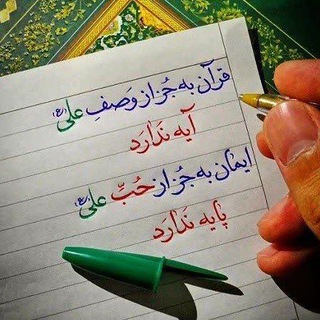 قرآن به جُز از وَصفِ علی (ع)
آیه نَدارَد
ایمان به جُز از حُبِّ علی (ع)
پایه نَدارَد